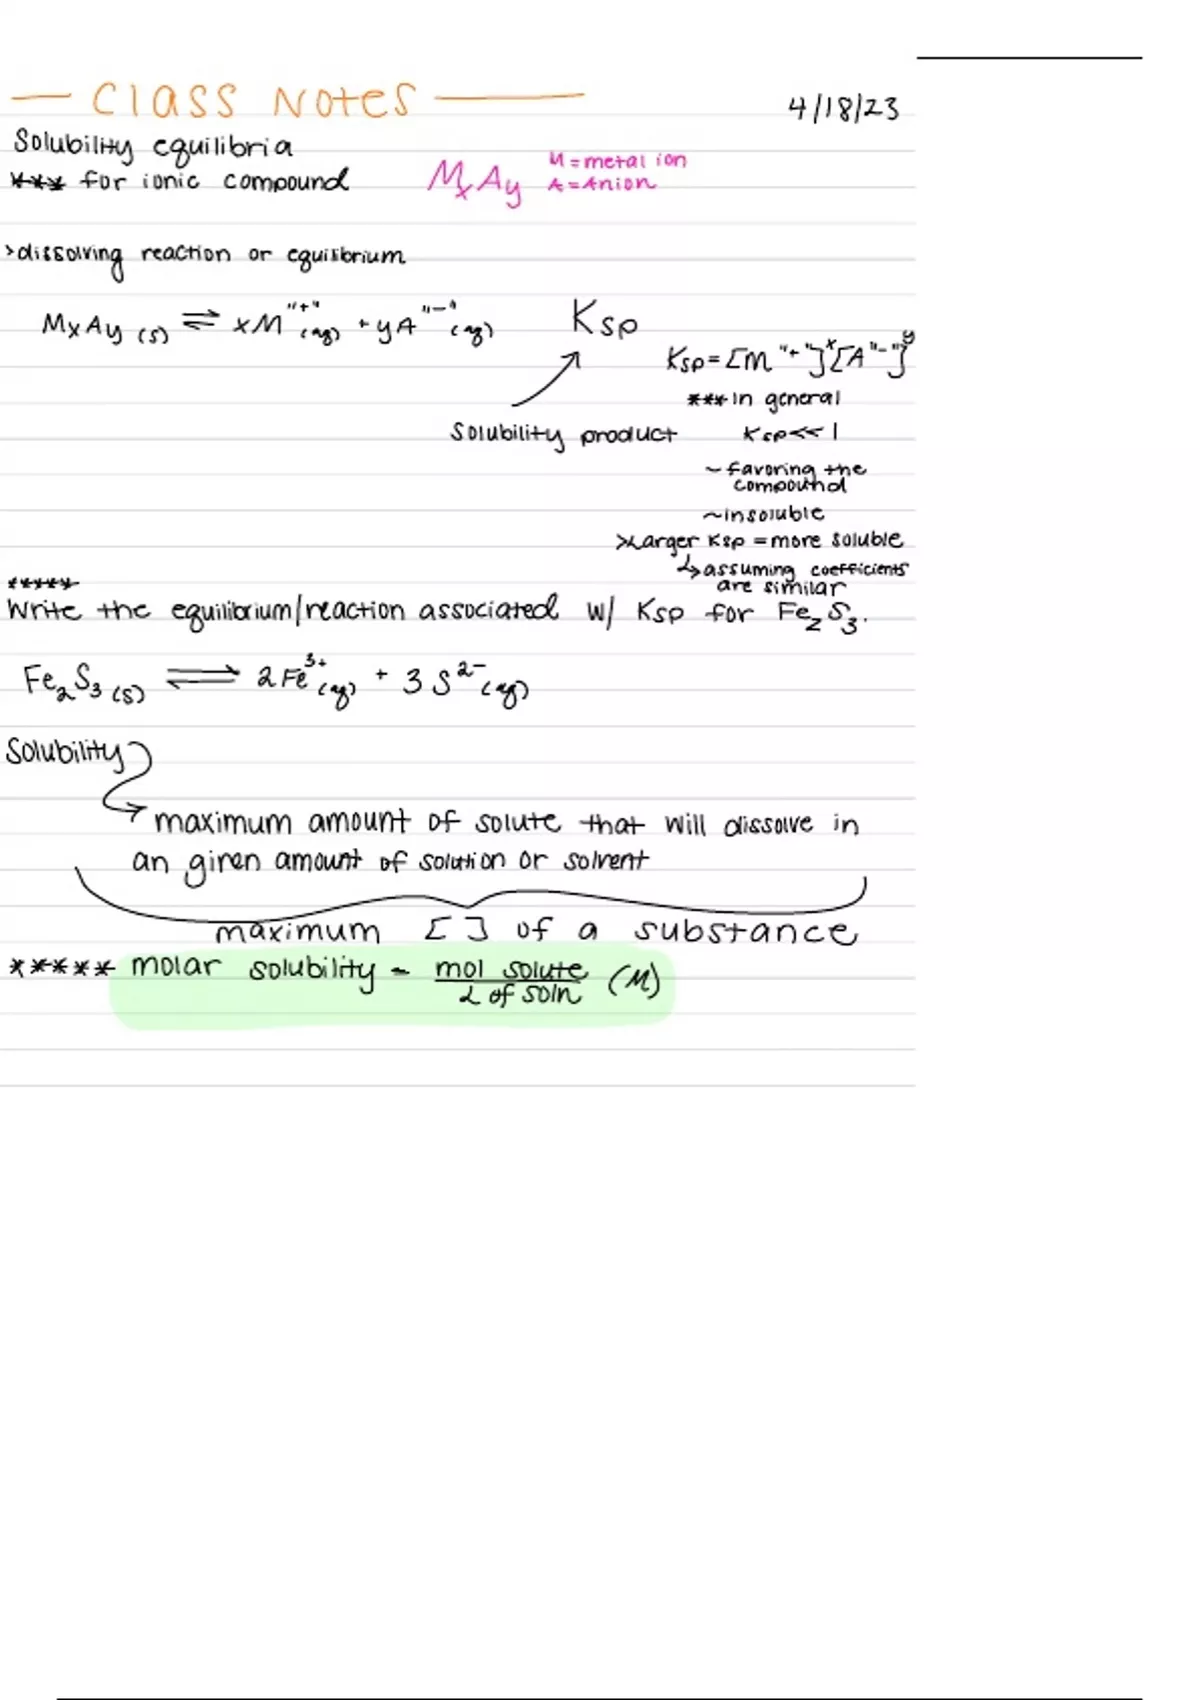 — Class Notes —
4/18/23
Solubility equilibria
*** for ionic compound
MₓAᵧ
M = metal ion
A = Anion
>dissolving reaction or equilibrium
MₓAᵧ (s) ⇌ xM"⁺"(aq) + yA"⁻"(aq)
Ksp
Ksp = [M"+"]ˣ[A"-"]ʸ
Solubility product
*** in general
Ksp << 1
~ favoring the
compound
~ insoluble
>Larger Ksp = more soluble
↳ assuming coefficients
are similar
*****
Write the equilibrium/reaction associated w/ Ksp for Fe₂S₃.
Fe₂S₃ (s) ⇌ 2Fe³⁺(aq) + 3S²⁻(aq)
Solubility
→ maximum amount of solute that will dissolve in
an given amount of solution or solvent
maximum [ ] of a substance
***** molar solubility - mol solute / L of soln (M)